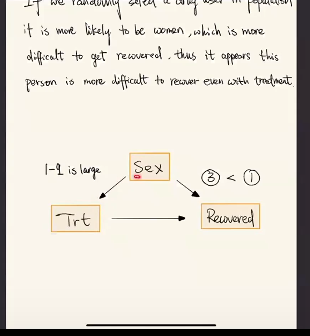 If we randomly select a drug user in population
it is more likely to be women, which is more
difficult to get recovered, thus it appears this
person is more difficult to recover even with treatment
1-q is large
Sex
③ < ①
Trt
Recovered